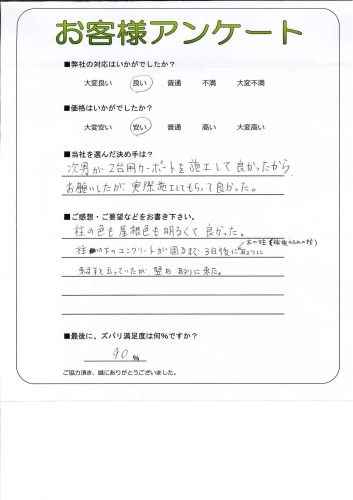 お客様アンケート
■弊社の対応はいかがでしたか?
大変良い 良い 普通 不満 大変不満
■価格はいかがでしたか?
大変安い 安い 普通 高い 大変高い
■当社を選んだ決め手は?
次男が2台用カーポートを施工して良かったから
お願いしたが実際施工してもらって良かった。
■ご感想・ご要望などをお書き下さい。
柱の色も屋根色も明るくて良かった。
木の柱
柱の下のコンクリートが固るまで3日後に取りに
来ますと云っていたが翌日取りに来た。
■最後に、ズバリ満足度は何%ですか?
90 %
ご協力頂き、誠にありがとうございました。